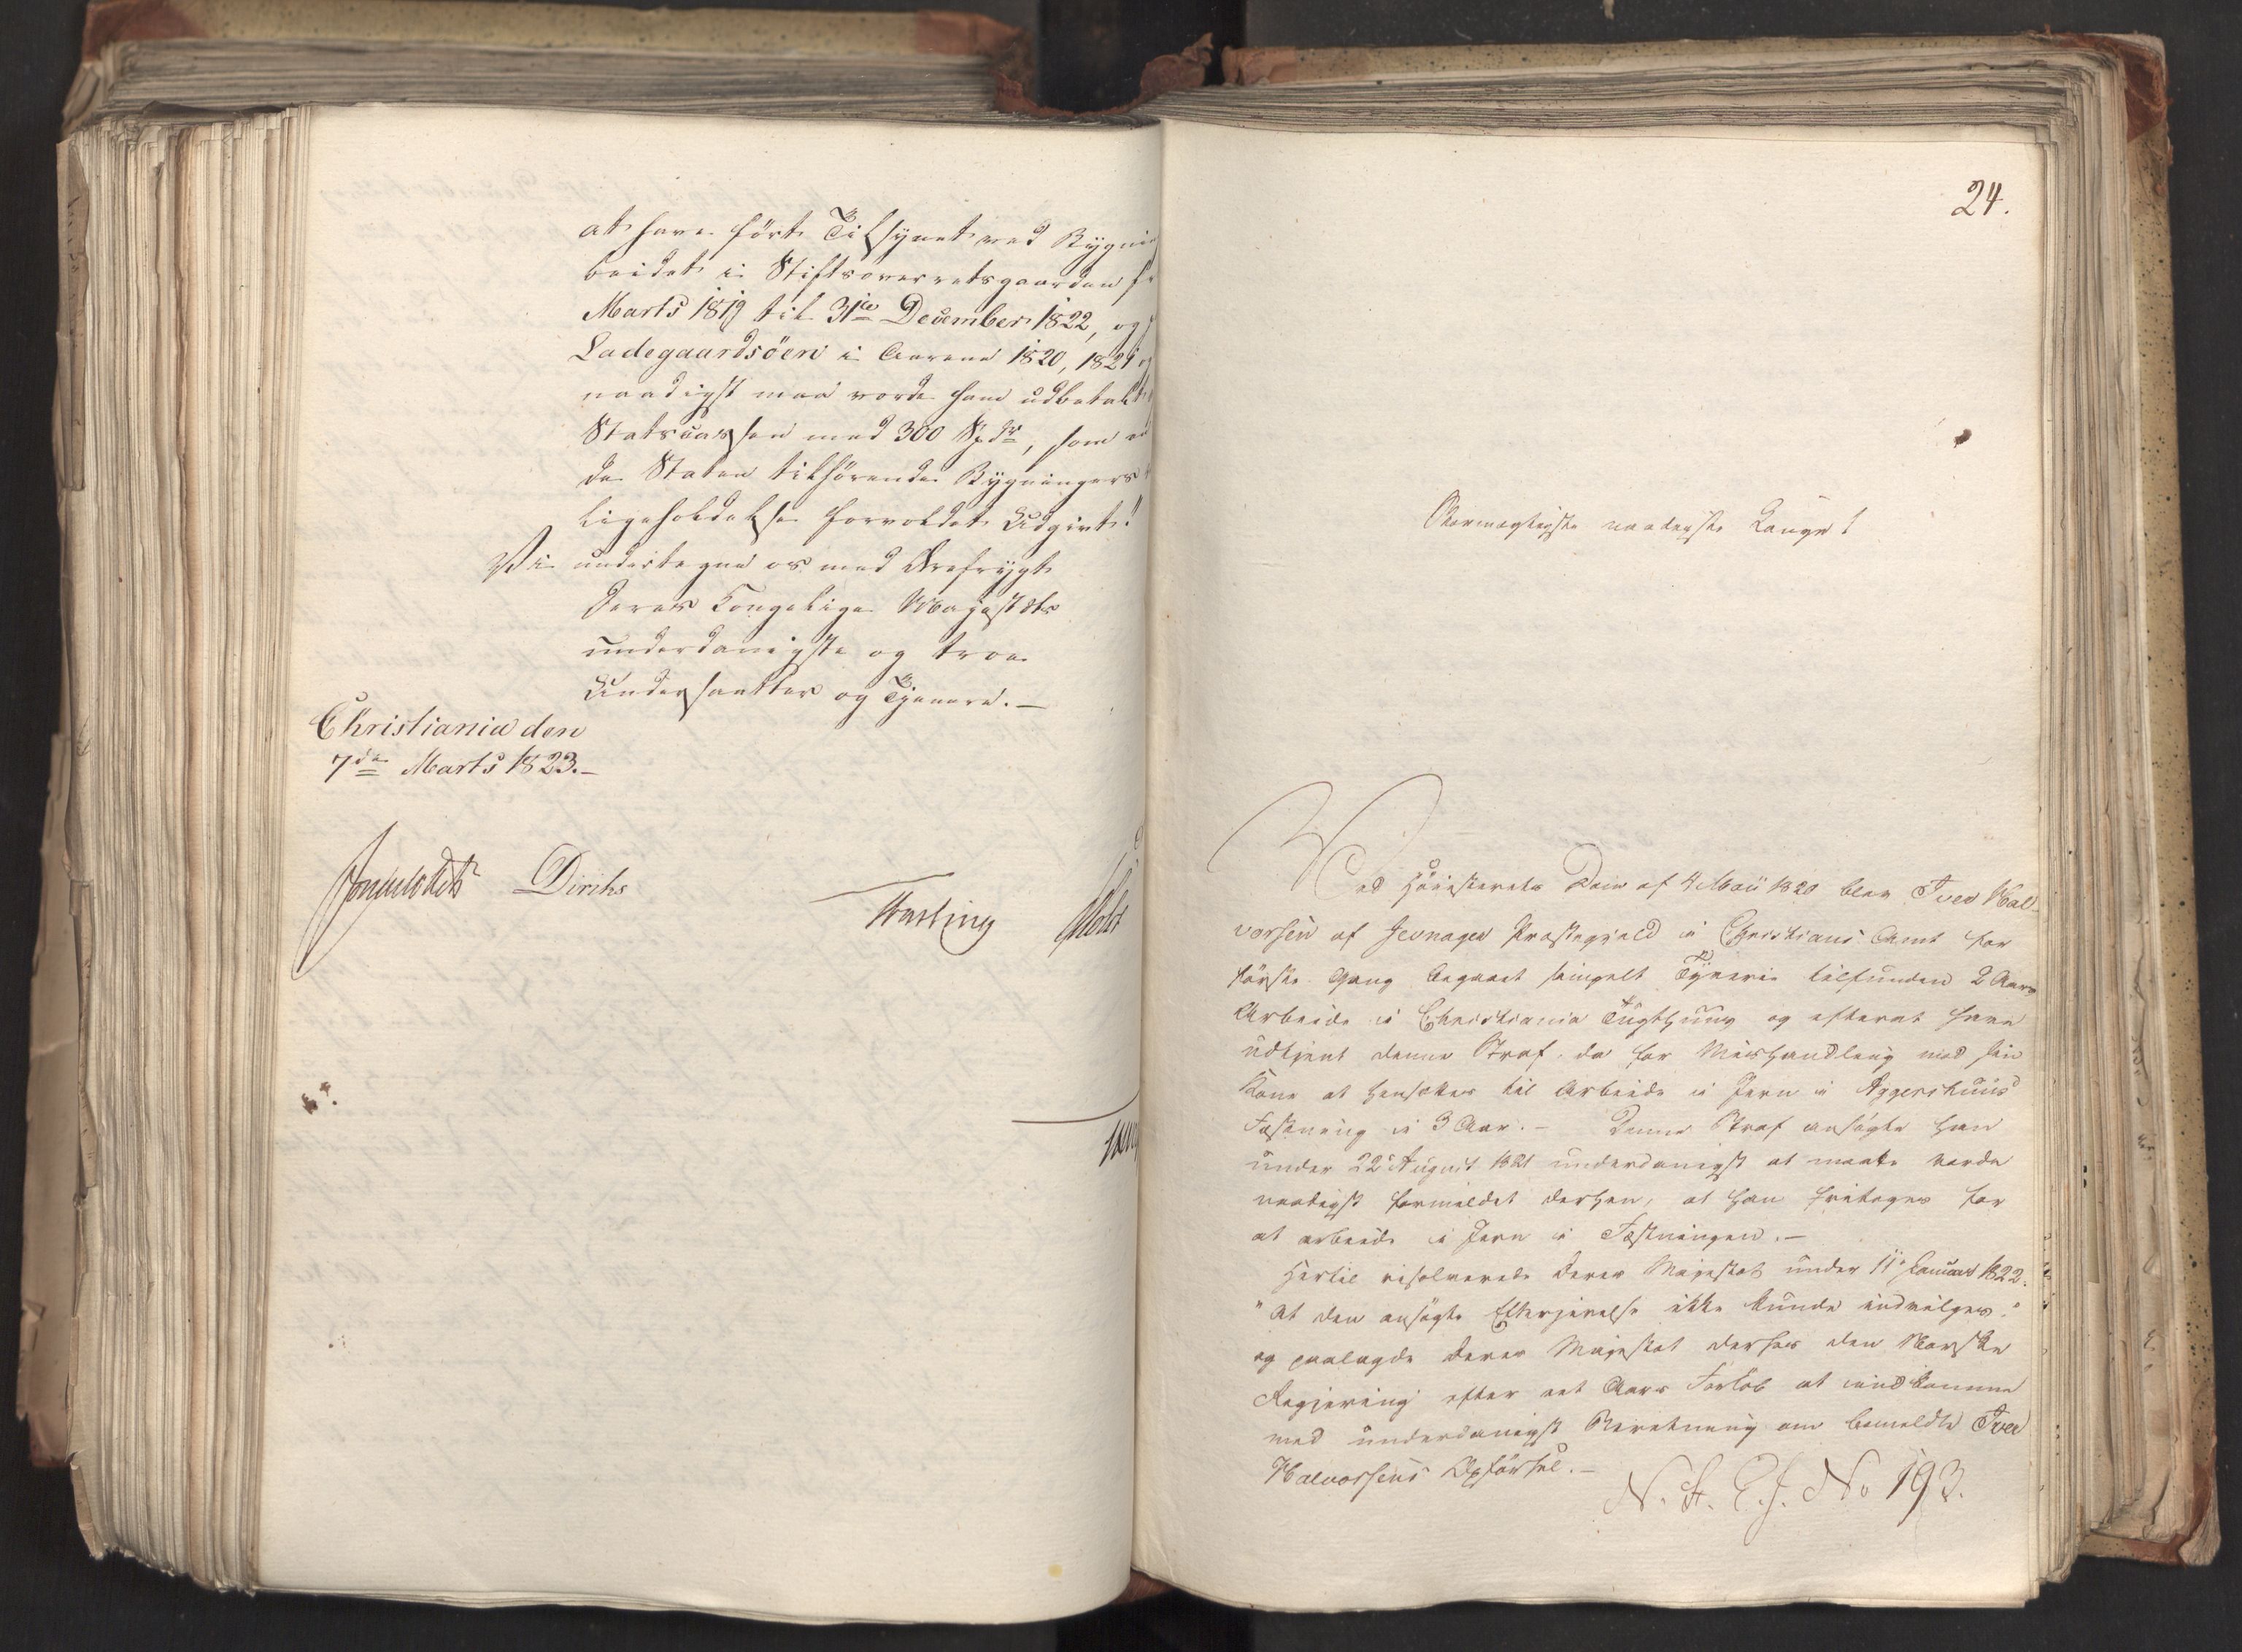 at have ført Tilsynet med Bygni
beidet i Stiftsoverretsgaarden fr
Marts 1819 til 31te December 1822, og
Ladegaardsöen i Aarene 1820, 1821 og
naadigst maa vorde ham udbetalt
Statscassen med 300 Spdr, som en
de Staten tilhørende Bygningers
ligeholdelse forvoldet Udgivt."
Vi undertegne os med Ærefrygt
Deres Kongelige Majestæts
underdanigste og troe
Undersaatter og Tjenere. —
Christiania den
7de Marts 1823. —
Diriks
24.
Stormægtigste naadigste Konge!
Ved Höiesterets Dom af 4 Mai 1820 blev Iver Hal-
vorsen af Jevnager Præstegjeld i Christians Amt for
förste Gang begaaet simpelt Tyverie tilfunden 2 Aars
Arbeide i Christiania Tugthuus og efterat have
udtjent denne Straf, da for Mishandling mod sin
Kone at hensættes til Arbeide i Jern i Aggershuus
Fæstning i 3 Aar. — Denne Straf ansögte han
under 22 August 1821 underdanigst at maatte vorde
naadigst formildet derhen, at han fritages for
at arbeide i Jern i Fæstningen. —
Hertil resolverede Deres Majestæt under 11 Januar 1822.
"At den ansögte Eftergivelse ikke kunde indvilges,"
og paalagde Deres Majestæt derhos den Norske
Regjering efter eet Aars Forlöb at indkomme
med underdanigst Beretning om bemeldte Iver
Halvorsens Opförsel. —
N. A. E. J. No 193.